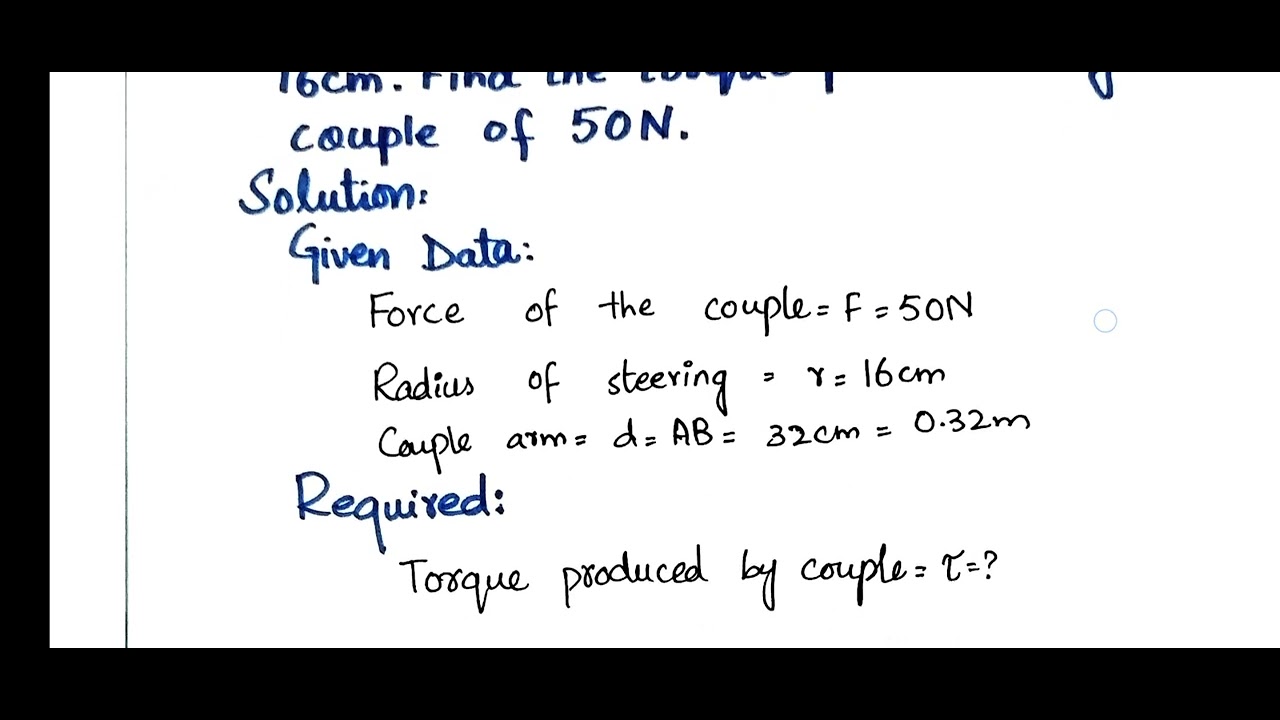 16cm. Find the torque
couple of 50N.
Solution:
Given Data:
Force of the couple = F = 50N
Radius of steering = r = 16cm
Couple arm = d = AB = 32cm = 0.32m
Required:
Torque produced by couple = τ = ?